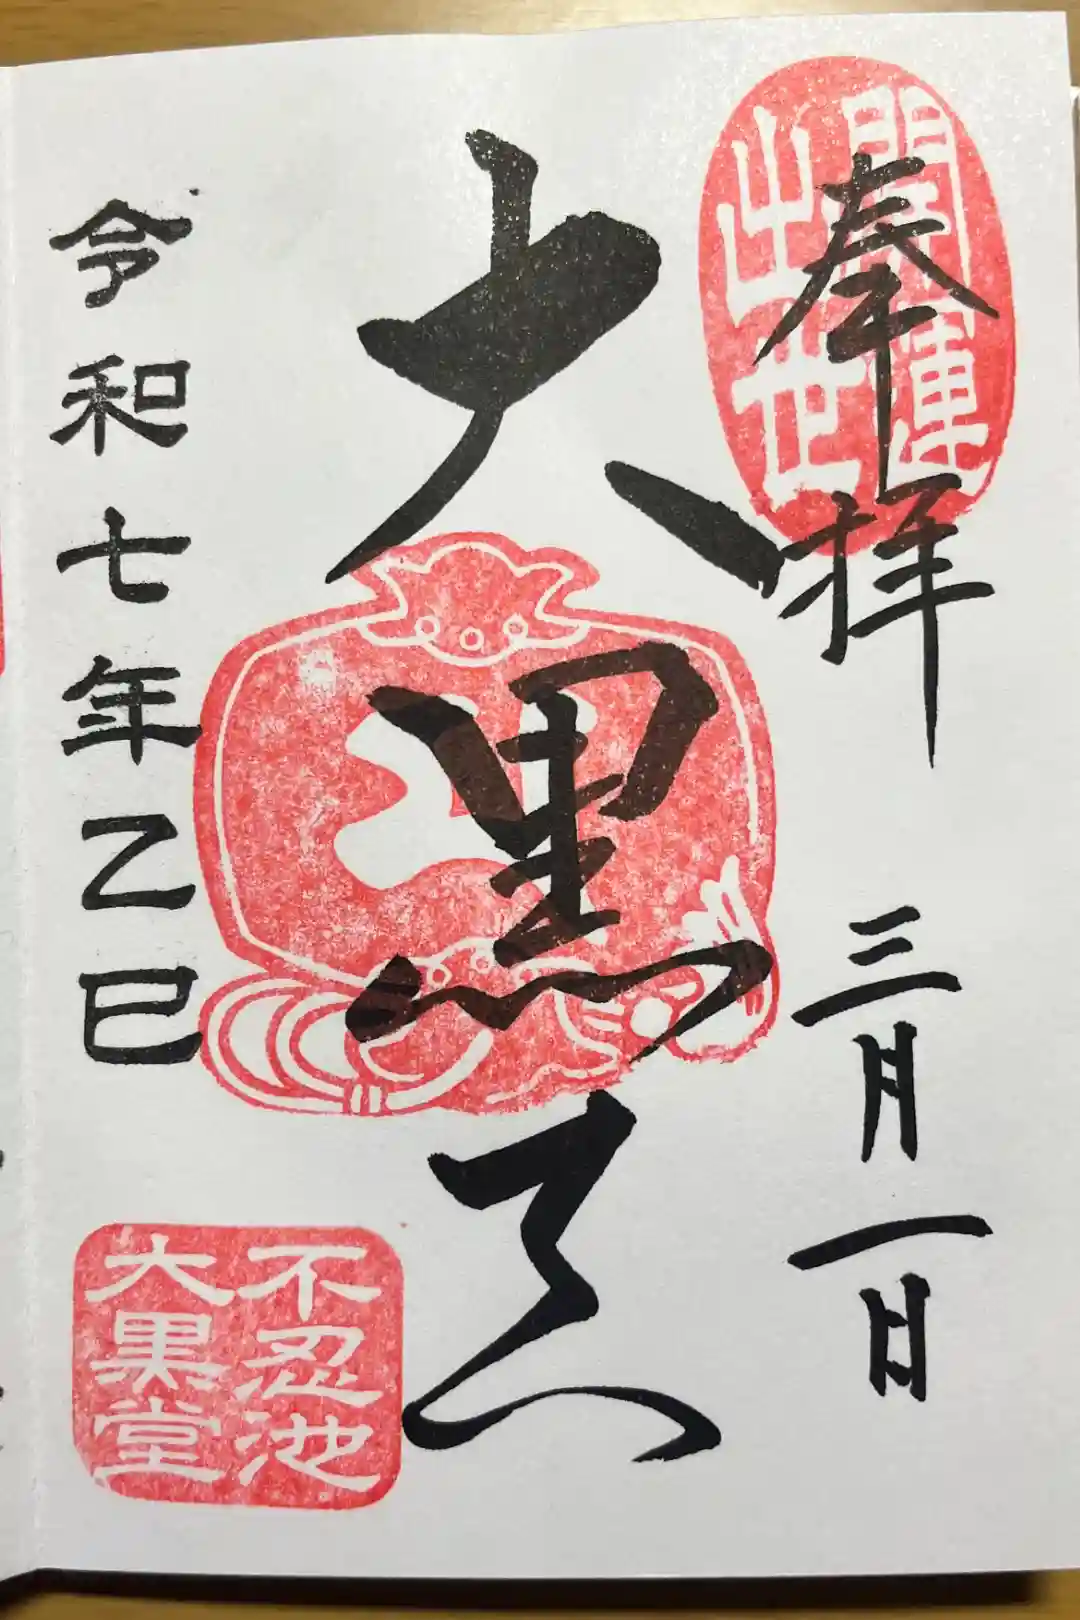 開運
出世
奉拝
三月一日
大黒天
令和七年乙巳
不忍池
大黒堂